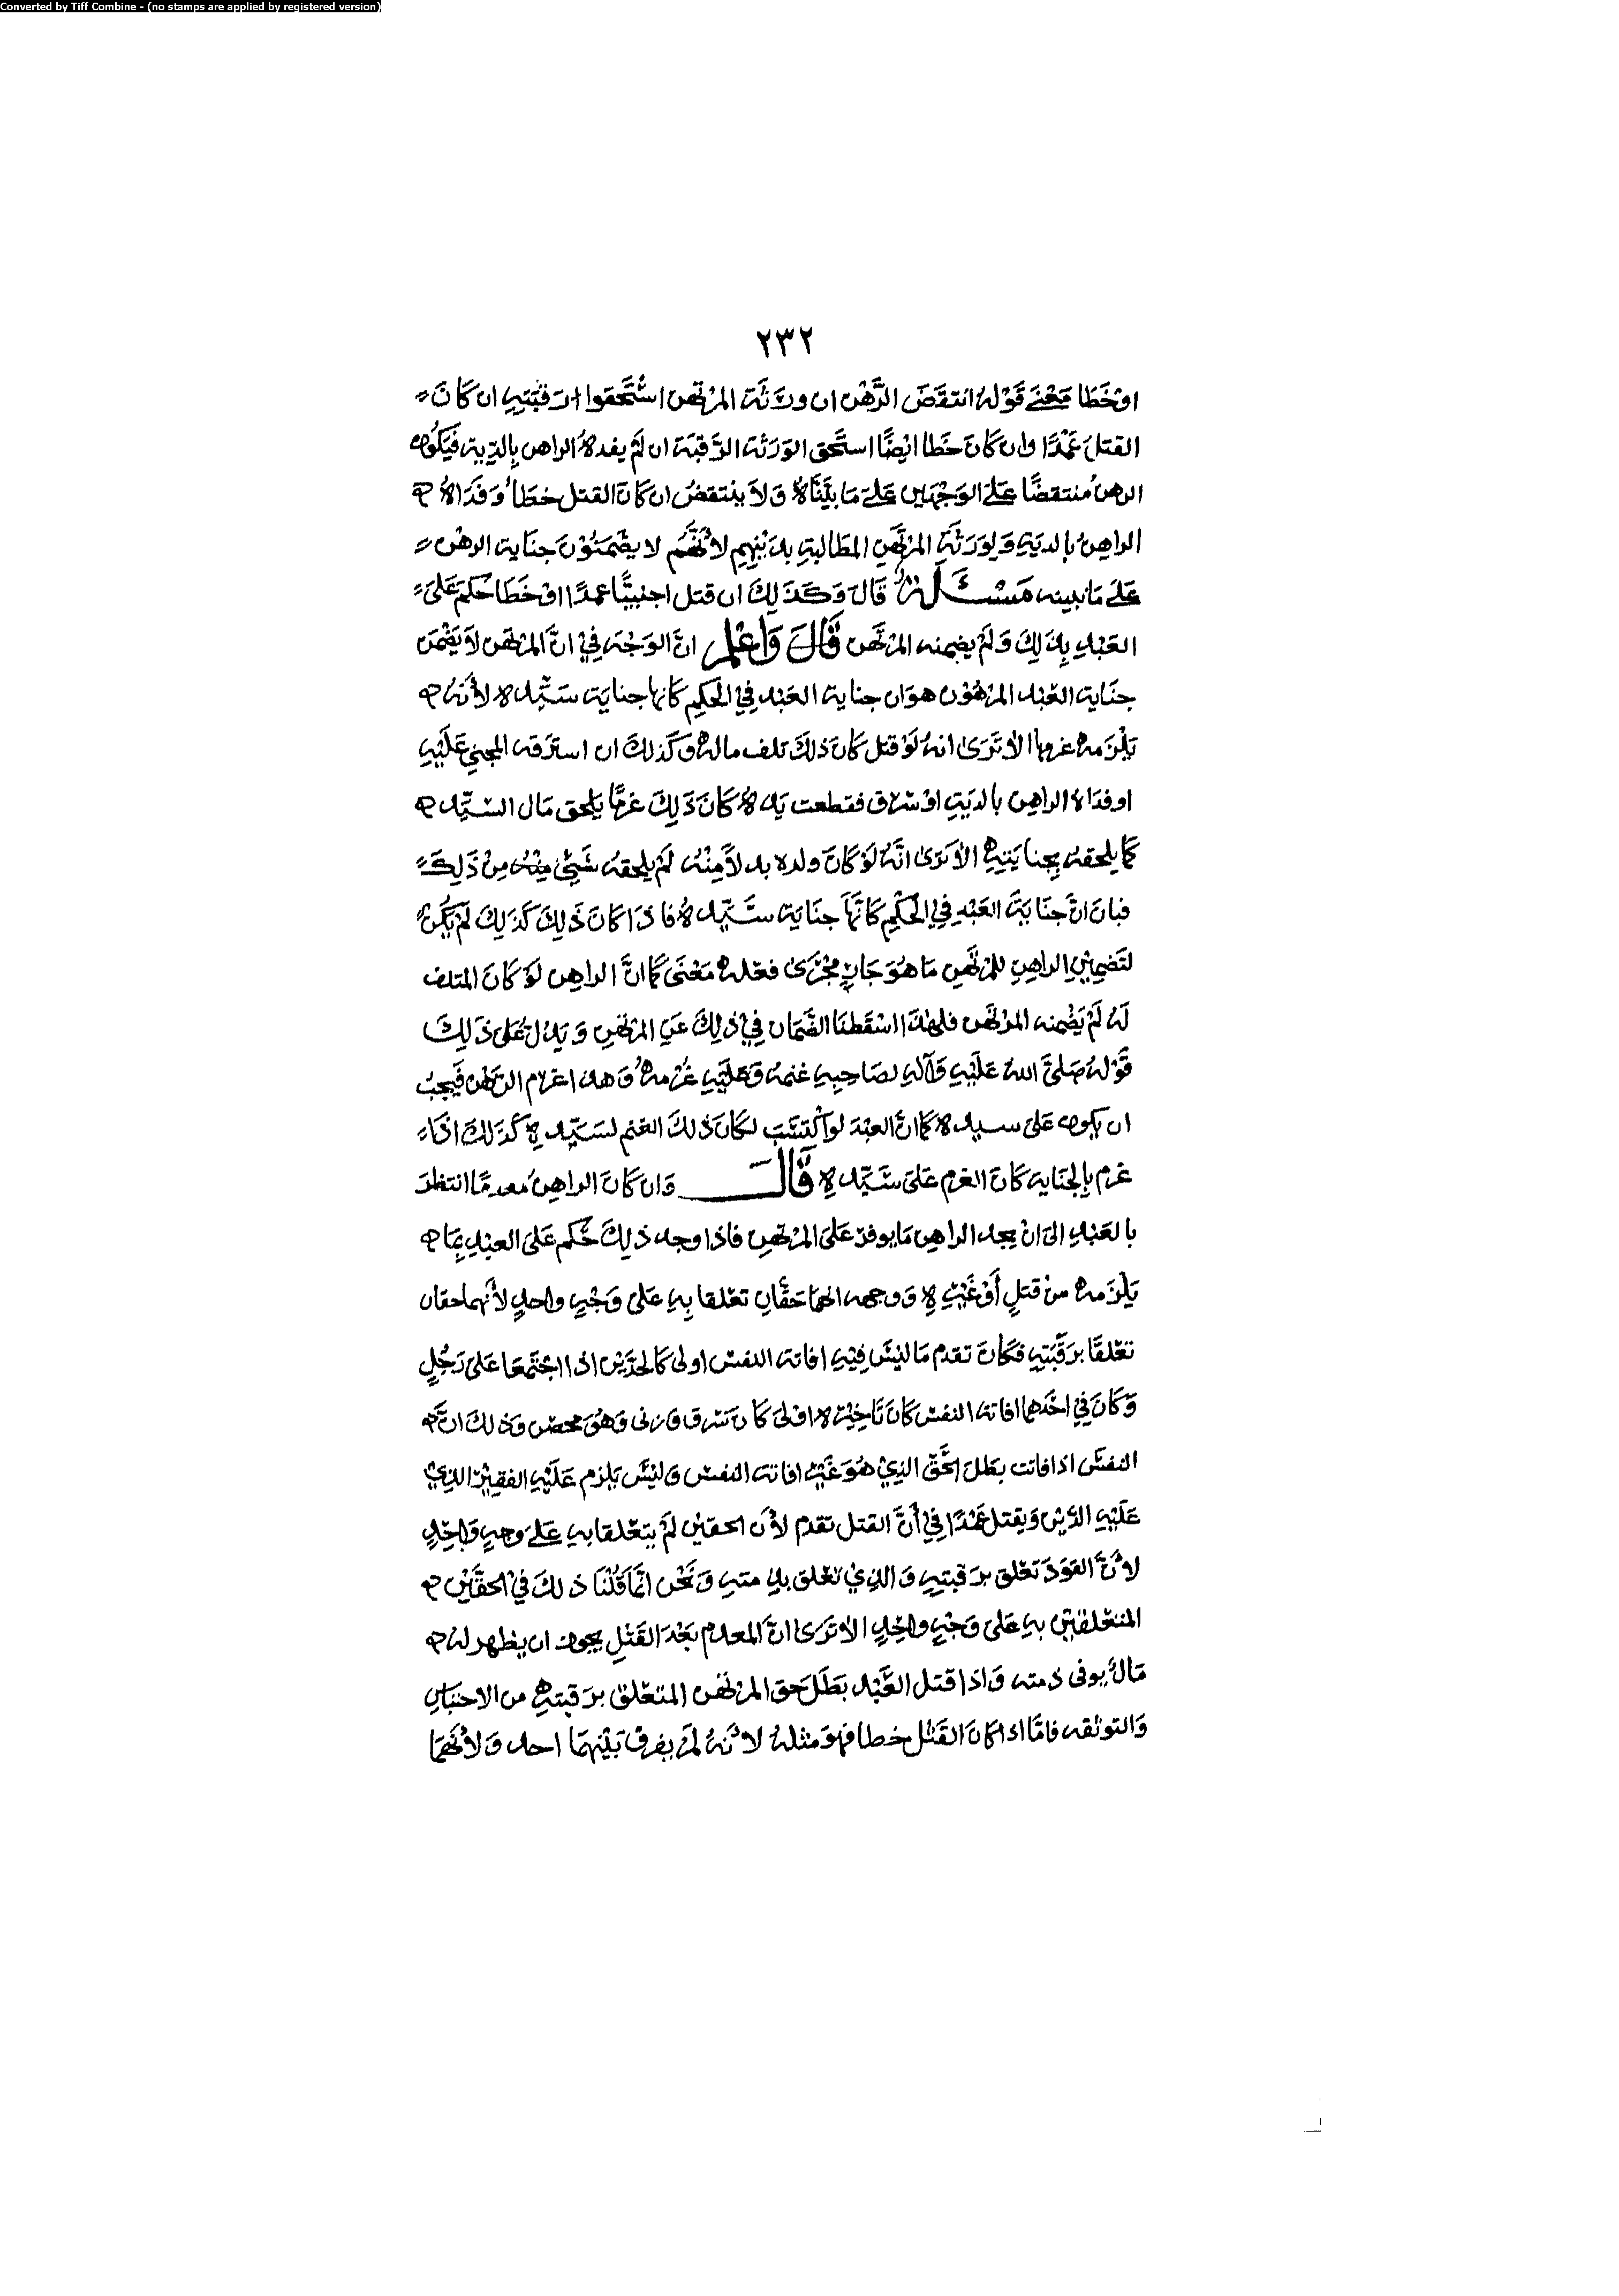 Converted by Tiff Combine - (no stamps are applied by registered version)
٢٣٢
اوْخَطا مَعْنَے قَوْلهُ انتقَضَ الرَّهْن ان ورَثَة المرْتهن اسْتَحقوا رَقبَتِهِ ان كَانَ
القتلَ عَمْدًا وان كَانَ خَطا ايْضًا استَحق الوَرَثة الرَّقبَة ان لم يفدهُ الراهن بِالدِّيةِ فيَكُون
الرهنُ منتقضًا عَلَے الوَجْهَين عَلَے مَا بيَّنَّاهُ وَلاَ ينْتقضُ ان كانَ القتل خطَأً وَفَدَاهُ
الراهِنُ بالديَةِ وَلِوَرَثَةِ المرْتَهَنِ المطَالبةِ بدَيْنِهِم لأنَّهُم لا يضْمَنُوْنَ جنَاية الرهْن
عَلَے مَا نبينه مَسْئَلَة قَالَ وَكَذَلِكَ ان قتل اجنبيًّا عمدًا اوْ خَطَا حُكمَ عَلَىَ
العَبْدِ بِذَلِكَ وَلَمْ يضمنه المرْتَهِن قَالَ وَاعْلم انَّ الوَجْهَ فِيْ انَّ المرْتهَن لاَ يَضْمَن
جنَاية العَبْد المرْهُوْن هوَان جناية العَبْد فِيْ الحكِم كانها جنايَة سَيّده لأنَهُ
يَلْزَمه غرمها الاَ تَرَىٰ انهُ لَوْ قتل كانَ ذلكَ تلف ماله وَكَذلكَ ان استرَقه المجني عَلَيْهِ
اوفدَاهُ الراهِن بالديَةِ اوْ سَرَق فقطعت يَدهُ كَانَ ذَلِكَ غرمًا يلحق مَال السَّيِّد
كمَا يلحقهُ بِجنايَتِهِ الاَ تَرَىٰ انَّهُ لَوْ كَانَ ولده بدلاً مِنْهُ لَمْ يلحقهُ شَيْئ مِنْهُ مِنْ ذَلِكَ
فبانَ انَّ جنَايَةَ العَبْدِ فِي الحكْمِ كَانَّهَا جنَايَة سَيّدهُ فاذَا كانَ ذَلِكَ كَذَلِكَ لَمْ يَكُنْ
لتَضمِيْنِ الراهِنِ للمرْتَهنِ مَا هُوَ جَانٍ مَجْرَىٰ فعله مَعْنَى كمَا انَّ الراهِن لَوْ كَانَ المتلف
لَهُ لَمْ يَضْمنه المرْتَهن فلِهَذَا اسْقَطنَا الضَّمَان فِيْ ذلِكَ عَنِ المرْتَهنِ وَيَدُل عَلَى ذَلِكَ
قَوْلهُ صَلىَّ اللهُ عَلَيْهِ وَآلهِ لصَاحِبهِ غنمهُ وَعَلَيْهِ غُرْمهُ وَهذا غرم الرَّهْن فَيَجبُ
ان يكون عَلىَ سيده كمَا انَّ العبْدَ لو اكْتسَبَ لكَانَ ذلكَ الغنم لسَيّدهِ كَذلكَ اذَا
غرم بالجنَاية كَانَ الغرم عَلىَ سَيّدهِ قَالَ وَان كانَ الراهِنُ معدمًا انتظرَ
بالعَبْدِ الىَ انْ يجد الراهِن مَا يوفرّ عَلىَ المرْتهنِ فاذا وجد ذلِكَ حُكم عَلىَ العبْدِ بِمَا
يَلْزَمه منْ قتلٍ أوْ غَيْرِهِ وَوجهه انهمَا حَقَّانِ تعَلقا بِهِ عَلىَ وَجْهٍ واحدٍ لأنهما حقان
تعَلقَا برَقَبَتهِ فكَانَ تقدم مَا ليْسَ فِيْهِ افاتة النفسْ اولى كالحدَّيْن اذا اجْتمَعَا عَلىَ رَجُلٍ
وَكَانَ فِيْ احَدهما افاتة النفسْ كانَ تَاخِيْره اوْلىَ كان سَرق وَزنى وَهُوَ محصن وَذلكَ انَّ
النفسَ اذا فاتت بطلَ الحَقّ الذيْ هُوَ غَيْر افاتة النفسْ وَليْسَ يلزم عَلَيْهِ الفقِيْر الذيْ
عَلَيْهِ الدَّيْن وَيقتل عَمْدًا فِيْ أنَّ القتل تقدم لأن الحقيْن لَمْ يتعَلقا بهِ عَلَے وجهٍ وَاحِدٍ
لأنَّ القوَدَ تعَلق برَقبتهِ وَالدينْ تعَلق بذِمتهِ وَنَحْن انَّمَا قُلْنَا ذلكَ فِيْ الحقيَّنْ
المتعَلقيْن بهِ عَلىَ وَجْهٍ واحِدٍ الاَ تَرَىٰ انَّ المعدم بَعْدَ القَتْلِ يجوز ان يظهر لهُ
مَالُ يوفى ذمته وَاذا قتل العَبْد بطَلَ حَق المرْتهن المتعَلق برَقبتهِ من الاحتباسِ
وَالتوثقه فامَّا اذا كانَ القتْل خطا فهوَ مثلهُ لأنَهُ لَمْ يفرق بَيْنهمَا احد وَلأنهُمَا